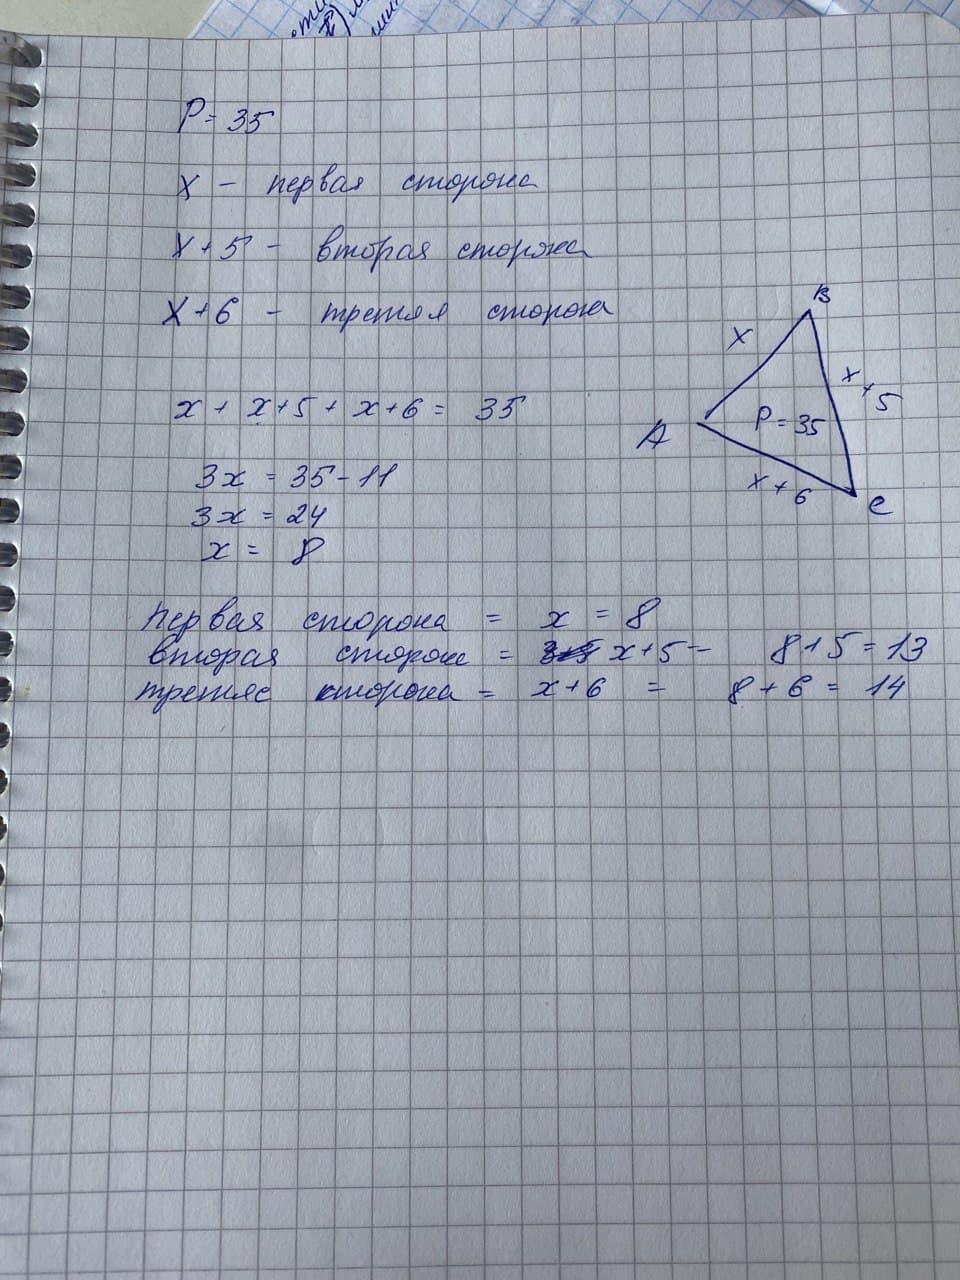 P = 35
x - первая сторона
x + 5 - вторая сторона
x + 6 - третяя сторона
B
x
x + 5
A
P = 35
x + 6
C
x + x + 5 + x + 6 = 35
3x = 35 - 11
3x = 24
x = 8
первая сторона = x = 8
вторая сторона = x + 5 - 8 + 5 = 13
третяя сторона = x + 6 = 8 + 6 = 14